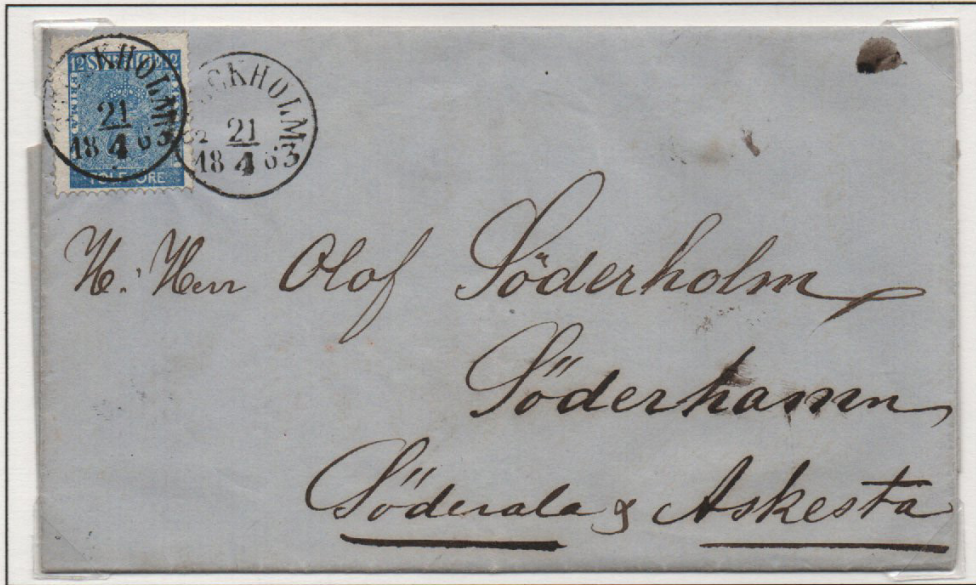 12 SVERIGE 12
TOLF ÖRE
STOCKHOLM
21
18 4 63
STOCKHOLM
21
18 4 63
H. Herr Olof Söderholm
Söderhamn
Söderala & Askesta